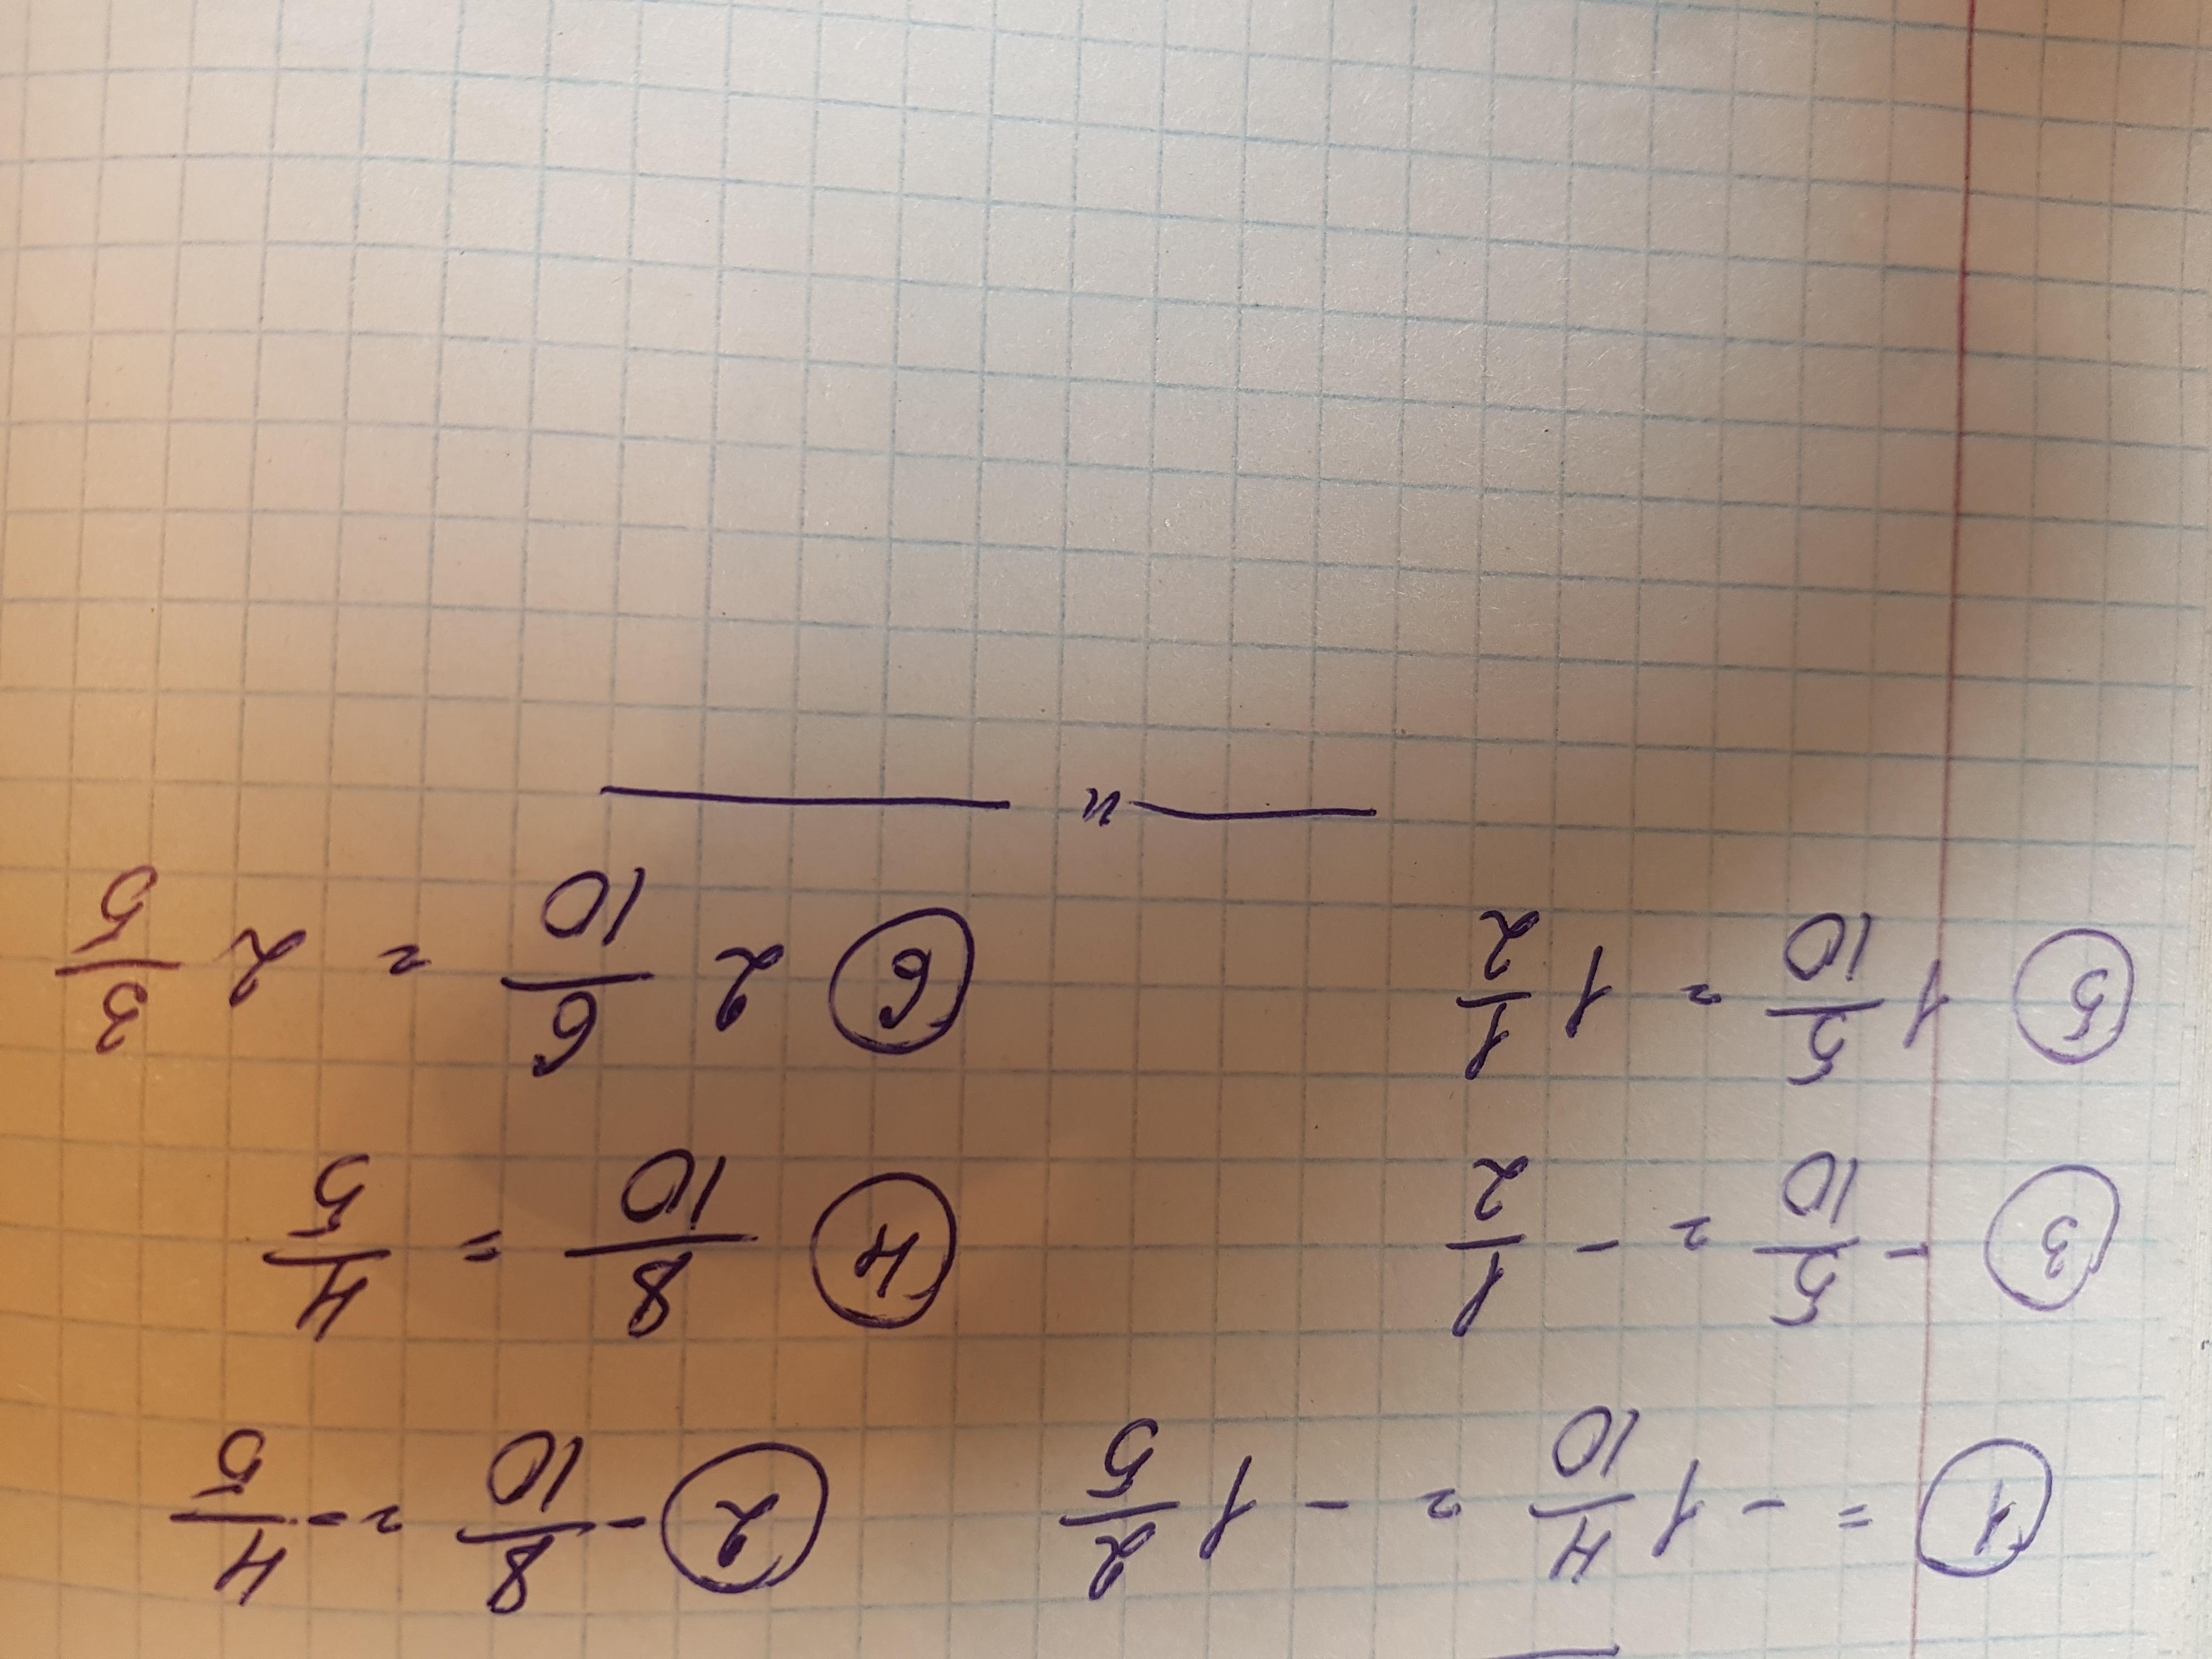 ① = - 1 4/10 = - 1 2/5 ② - 8/10 = - 4/5
③ - 5/10 = - 1/2 ④ 8/10 = 4/5
⑤ 1 5/10 = 1 1/2 ⑥ 2 6/10 = 2 3/5
— " —